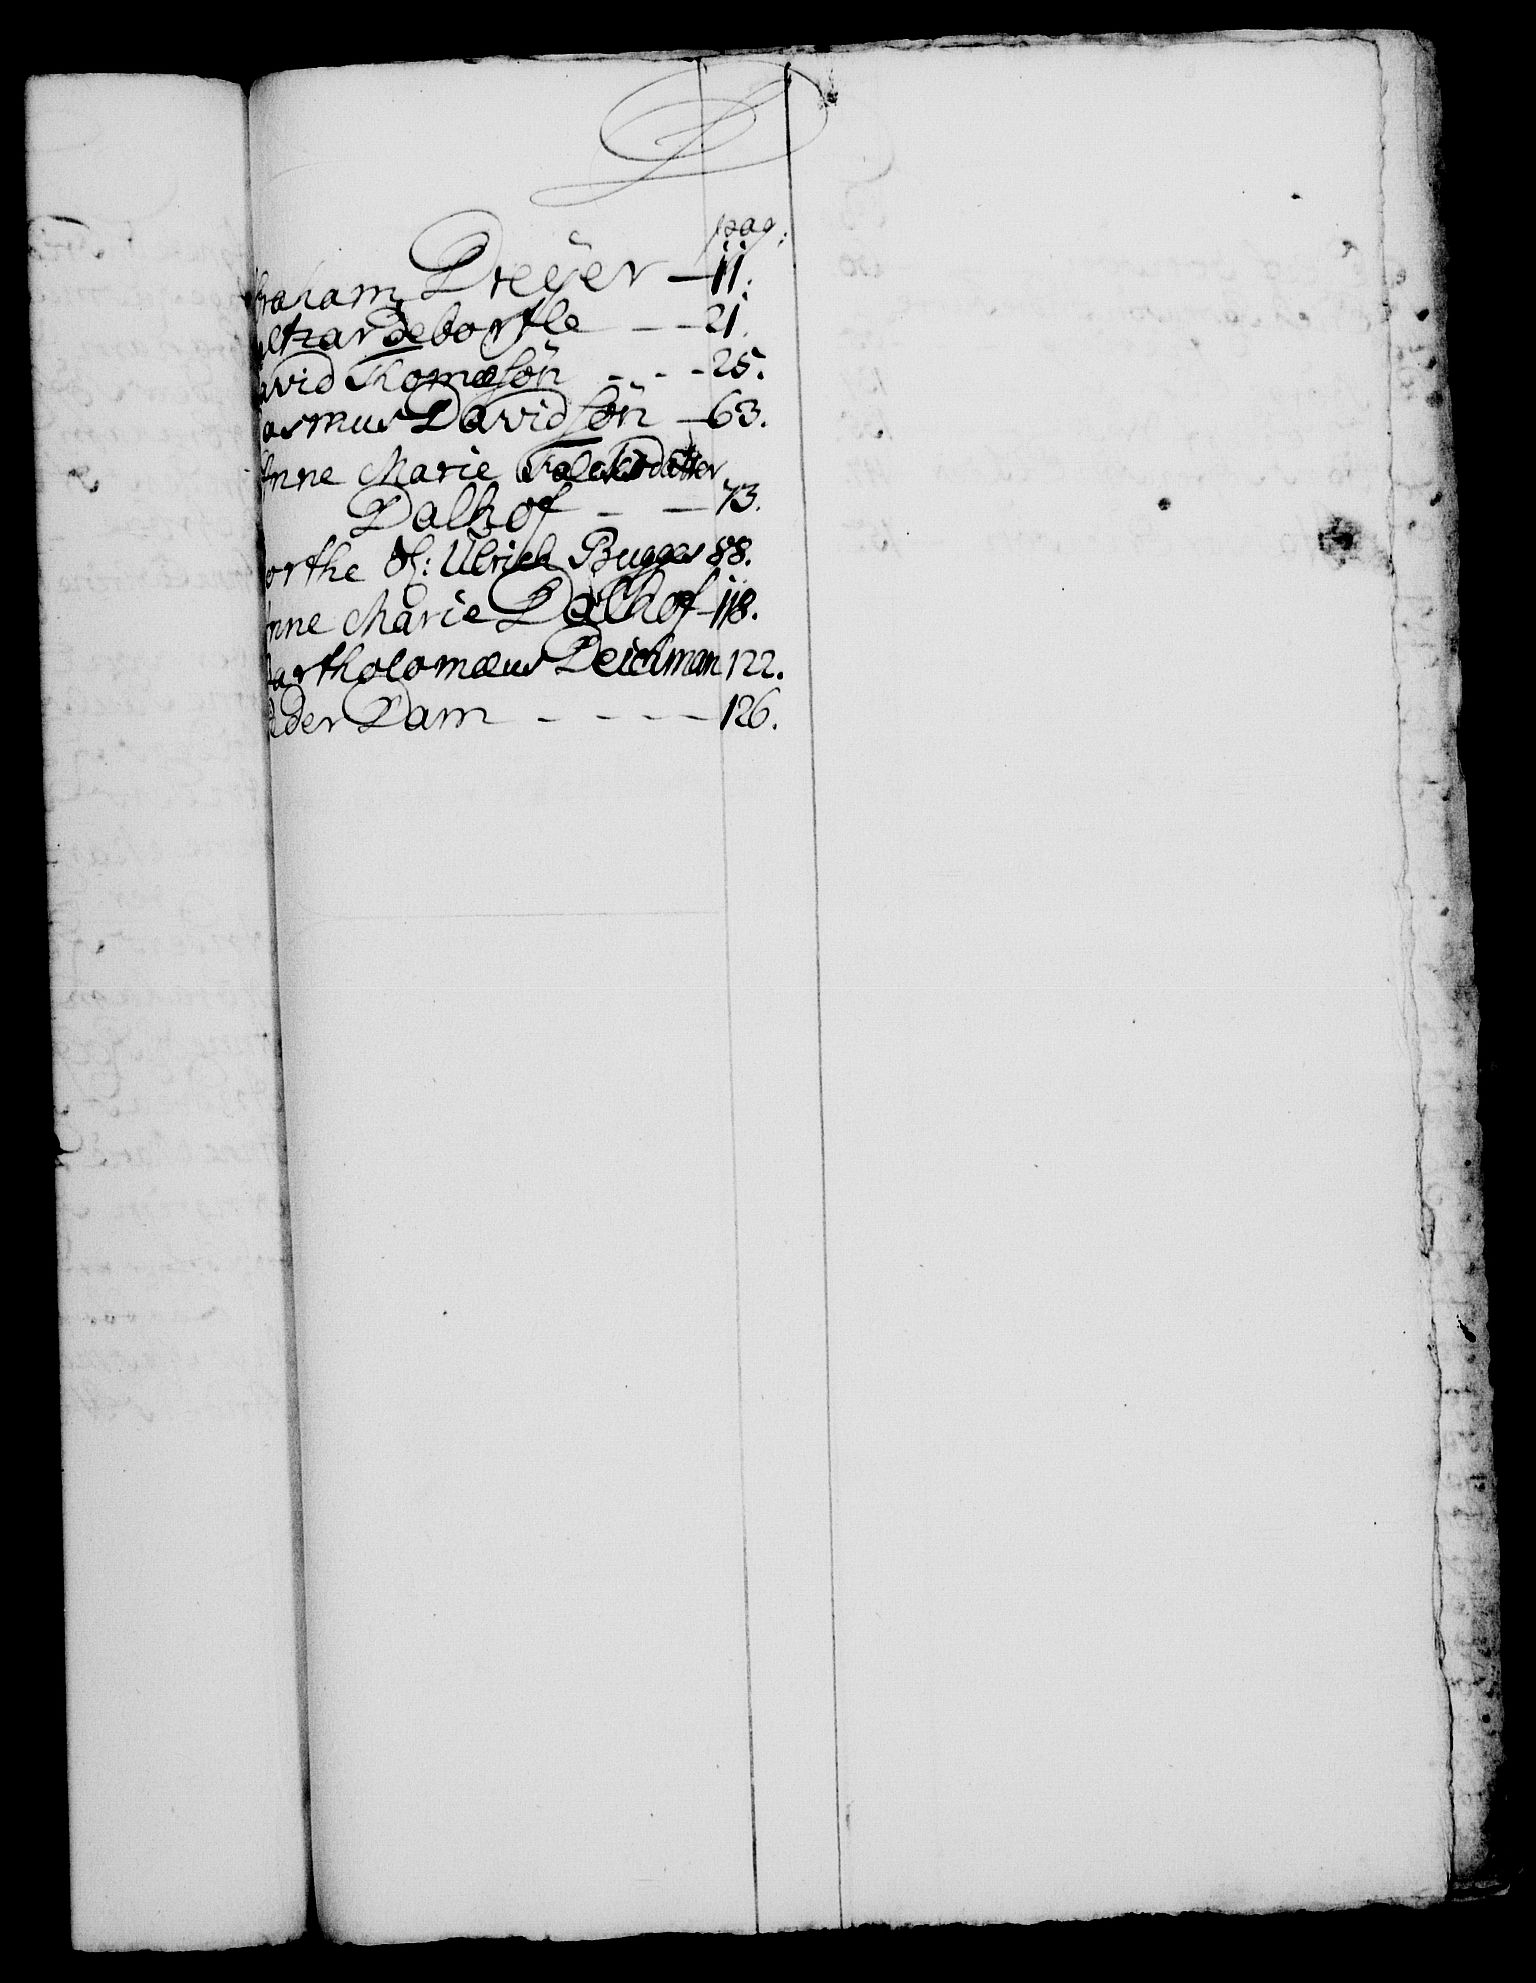 D
pag:
braham Dreÿer — 11.
altzar de borste — — 21.
avid Thomæsön - - - 25.
asmus Davidsön — 63.
Anne Marie Falchsdatter
Dalhof — — 73.
orthe Ulrich Bugges 88.
Anne Marie Dalhof — 118.
Bartholomæus Deichman 122.
eder Dam - - - - 126.